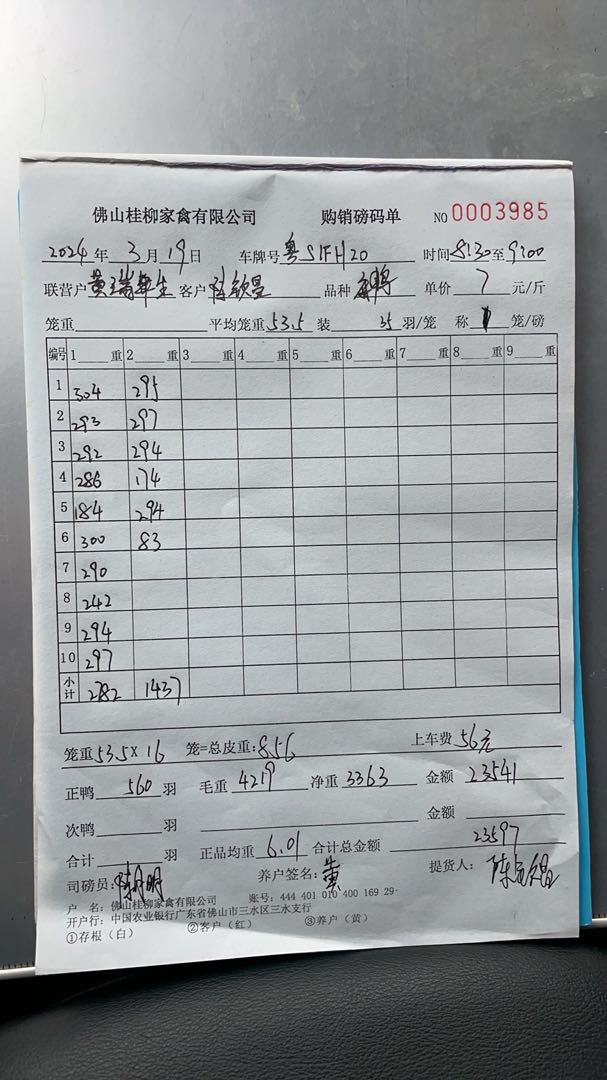 佛山桂柳家禽有限公司 购销磅码单 NO 0003985
2024 年 3 月 19 日 车牌号 粤S1FH20 时间 8:30 至 9:00
联营户 黄瑞 生 客户 陈钦昆 品种 单价 7 元/斤
笼重 平均笼重 53.5 装 35 羽/笼 称 1 笼/磅
编号 1 重 2 重 3 重 4 重 5 重 6 重 7 重 8 重 9 重
1 304 295
2 293 297
3 292 294
4 286 174
5 184 294
6 300 83
7 290
8 242
9 294
10 297
小计 2782 1437
笼重 53.5×16 笼=总皮重: 856 上车费 56元
正鸭 560 羽 毛重 4219 净重 3363 金额 23541
次鸭 羽 金额
合计 羽 正品均重 6.01 合计总金额 23597
司磅员: 陈月明 养户签名: 黄 提货人: 陈
户 名: 佛山桂柳家禽有限公司 账号: 444 401 010 400 169 29
开户行: 中国农业银行广东省佛山市三水区三水支行
①存根（白） ②客户（红） ③养户（黄）